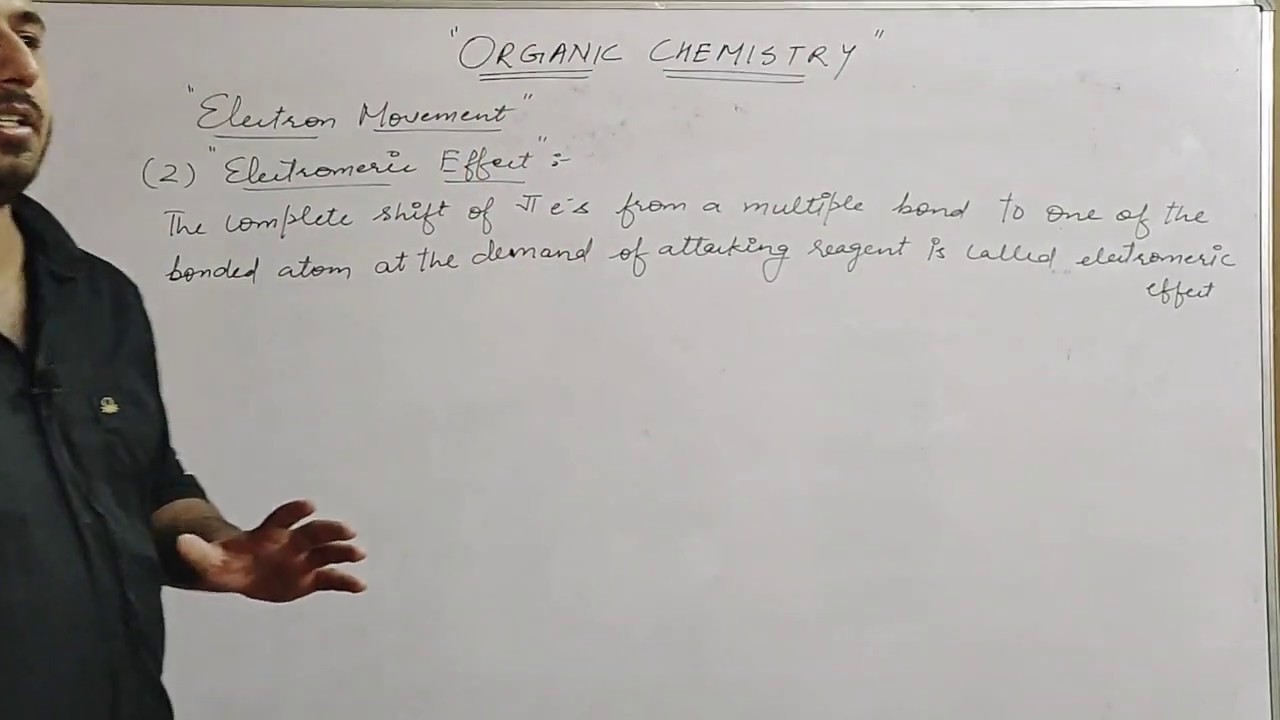 "ORGANIC CHEMISTRY"
"Electron Movement"
(2) "Electromeric Effect" :-
The complete shift of π e-s from a multiple bond to one of the
bonded atom at the demand of attacking reagent is called electromeric
effect